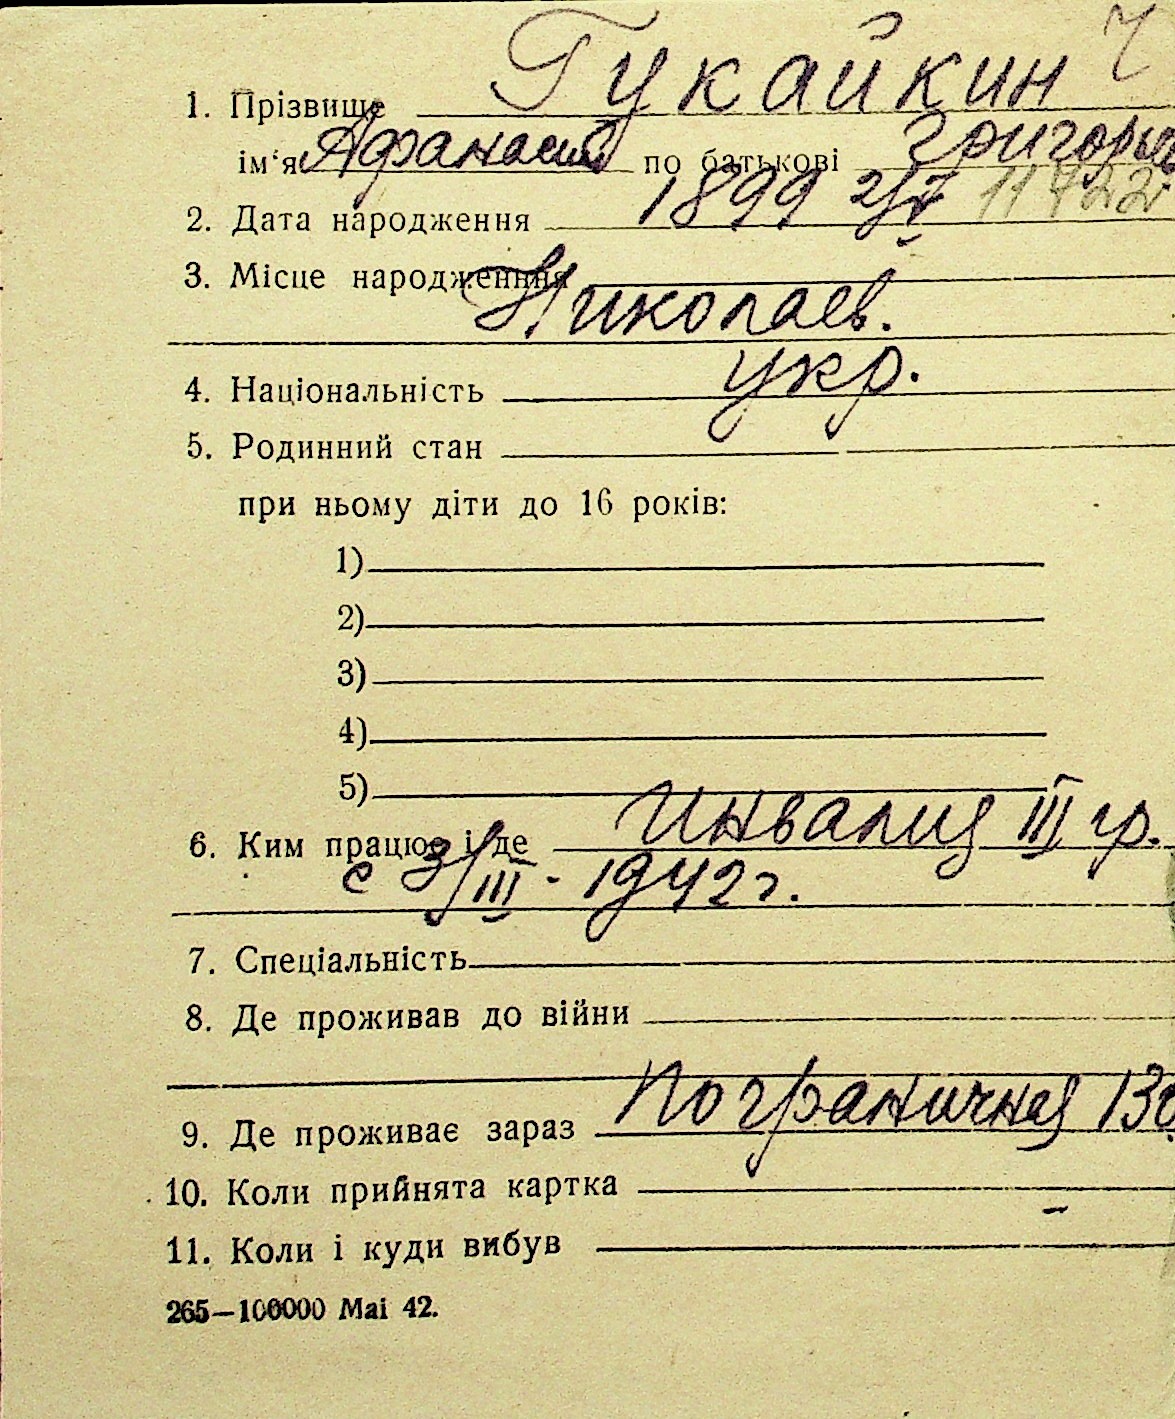 1. Прізвище Гукайкин
ім‘я Афанасий по батькові Григорьев
2. Дата народження 1899 2/V
3. Місце народженння
Николаев.
4. Національність укр.
5. Родинний стан
при ньому діти до 16 років:
1)
2)
3)
4)
5)
6. Ким працює і де Инвалид III гр.
с 3/III - 1942 г.
7. Спеціальність
8. Де проживав до війни
9. Де проживає зараз Пограничная 13
10. Коли прийнята картка
11. Коли і куди вибув
265—100000 Mai 42.